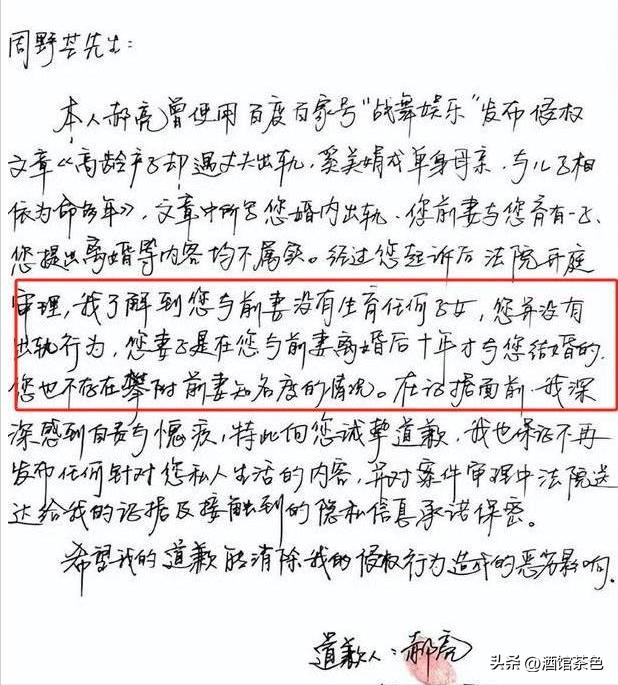 周野芒先生:
本人郝亮曾使用百度百家号“战舞娱乐”发布侵权
文章《高龄产子却遇丈夫出轨,奚美娟成单身母亲,与儿子相
依为命多年》,文章中所写您婚内出轨、您前妻与您育有一子、
您提出离婚等内容均不属实。经过您起诉后法院开庭
审理,我了解到您与前妻没有生育任何子女,您并没有
出轨行为,您妻子是在您与前妻离婚后十年才与您结婚的,
您也不存在攀附前妻知名度的情况。在证据面前,我深
深感到自责与愧疚,特此向您诚挚道歉,我也保证不再
发布任何针对您私人生活的内容,并对案件审理中法院送
达给我的证据及接触到的隐私信息承诺保密。
希望我的道歉能消除我的侵权行为造成的恶劣影响.
道歉人:郝亮
头条 @酒馆茶色